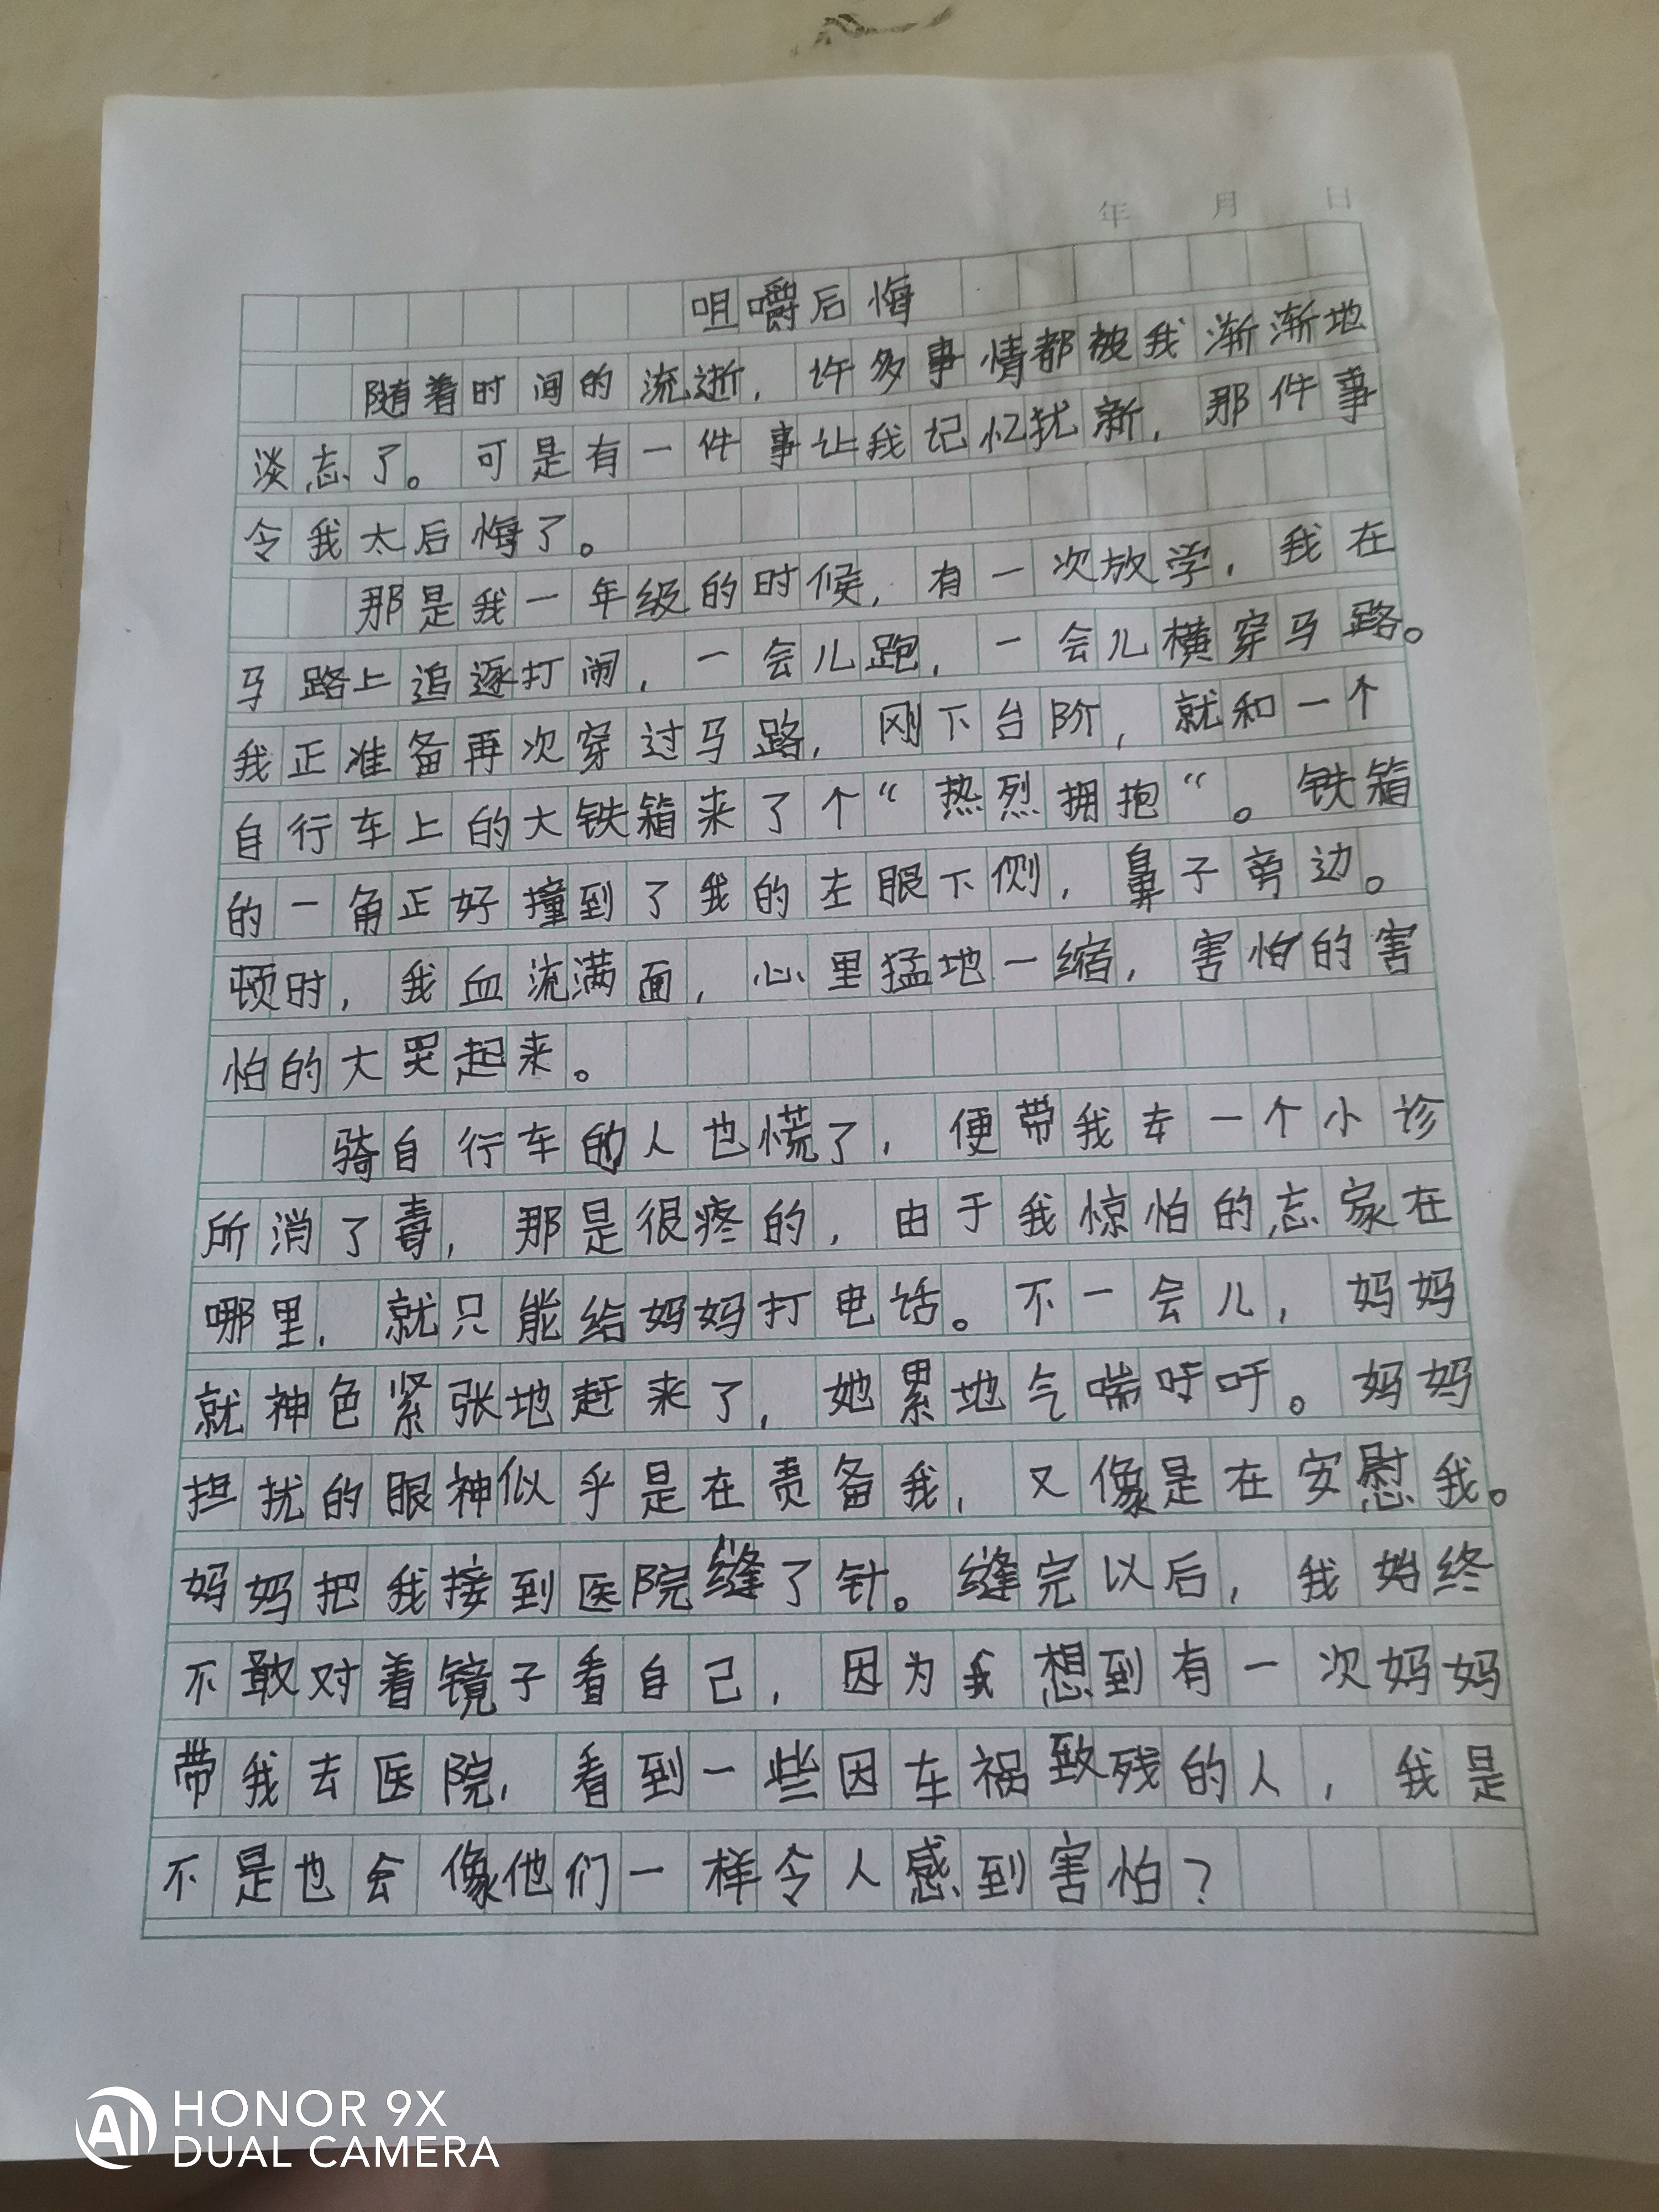 年 月 日
咀嚼后悔
随着时间的流逝，许多事情都被我渐渐地
淡忘了。可是有一件事让我记忆犹新，那件事
令我太后悔了。
那是我一年级的时候，有一次放学，我在
马路上追逐打闹，一会儿跑，一会儿横穿马路。
我正准备再次穿过马路，刚下台阶，就和一个
自行车上的大铁箱来了个“热烈拥抱“。铁箱
的一角正好撞到了我的左眼下侧，鼻子旁边。
顿时，我血流满面，心里猛地一缩，害怕的害
怕的大哭起来。
骑自行车的人也慌了，便带我去一个小诊
所消了毒，那是很疼的，由于我惊怕的忘家在
哪里，就只能给妈妈打电话。不一会儿，妈妈
就神色紧张地赶来了，她累地气喘吁吁。妈妈
担扰的眼神似乎是在责备我，又像是在安慰我。
妈妈把我接到医院缝了针。缝完以后，我始终
不敢对着镜子看自己，因为我想到有一次妈妈
带我去医院，看到一些因车祸致残的人，我是
不是也会像他们一样令人感到害怕？
HONOR 9X
DUAL CAMERA